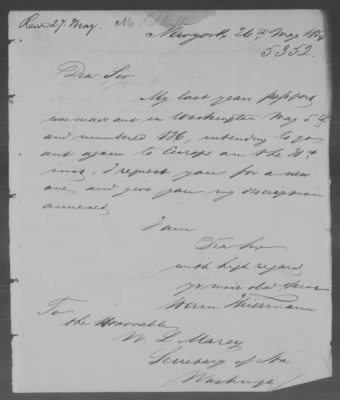 Recd 27 May.
New york 26th May
5352.
Dear Sir
My last years passport
was made out in Washington May 5th
and numbered intending to go
out again to Europe on the
inst. I request you for a new
one, and give you my discription
annexed
I am
Dear Sir
with high regard
yr most obd
Thiermann
To
the Honorable
W. L. Marcy
Secretary of
Washing